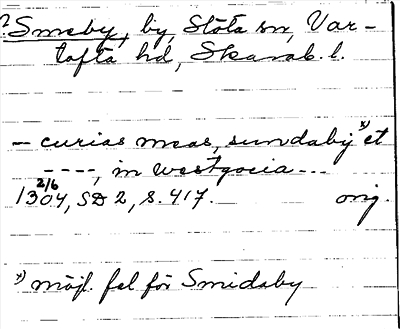 ? Smeby, by, Slöta sn, Var-
tofta hd, Skarab. l.
— curias meas, sundaby x) et
----, in westgocia ...
1304, 2/6 SD 2, s. 417. orig.
x) möjl. fel för Smidaby